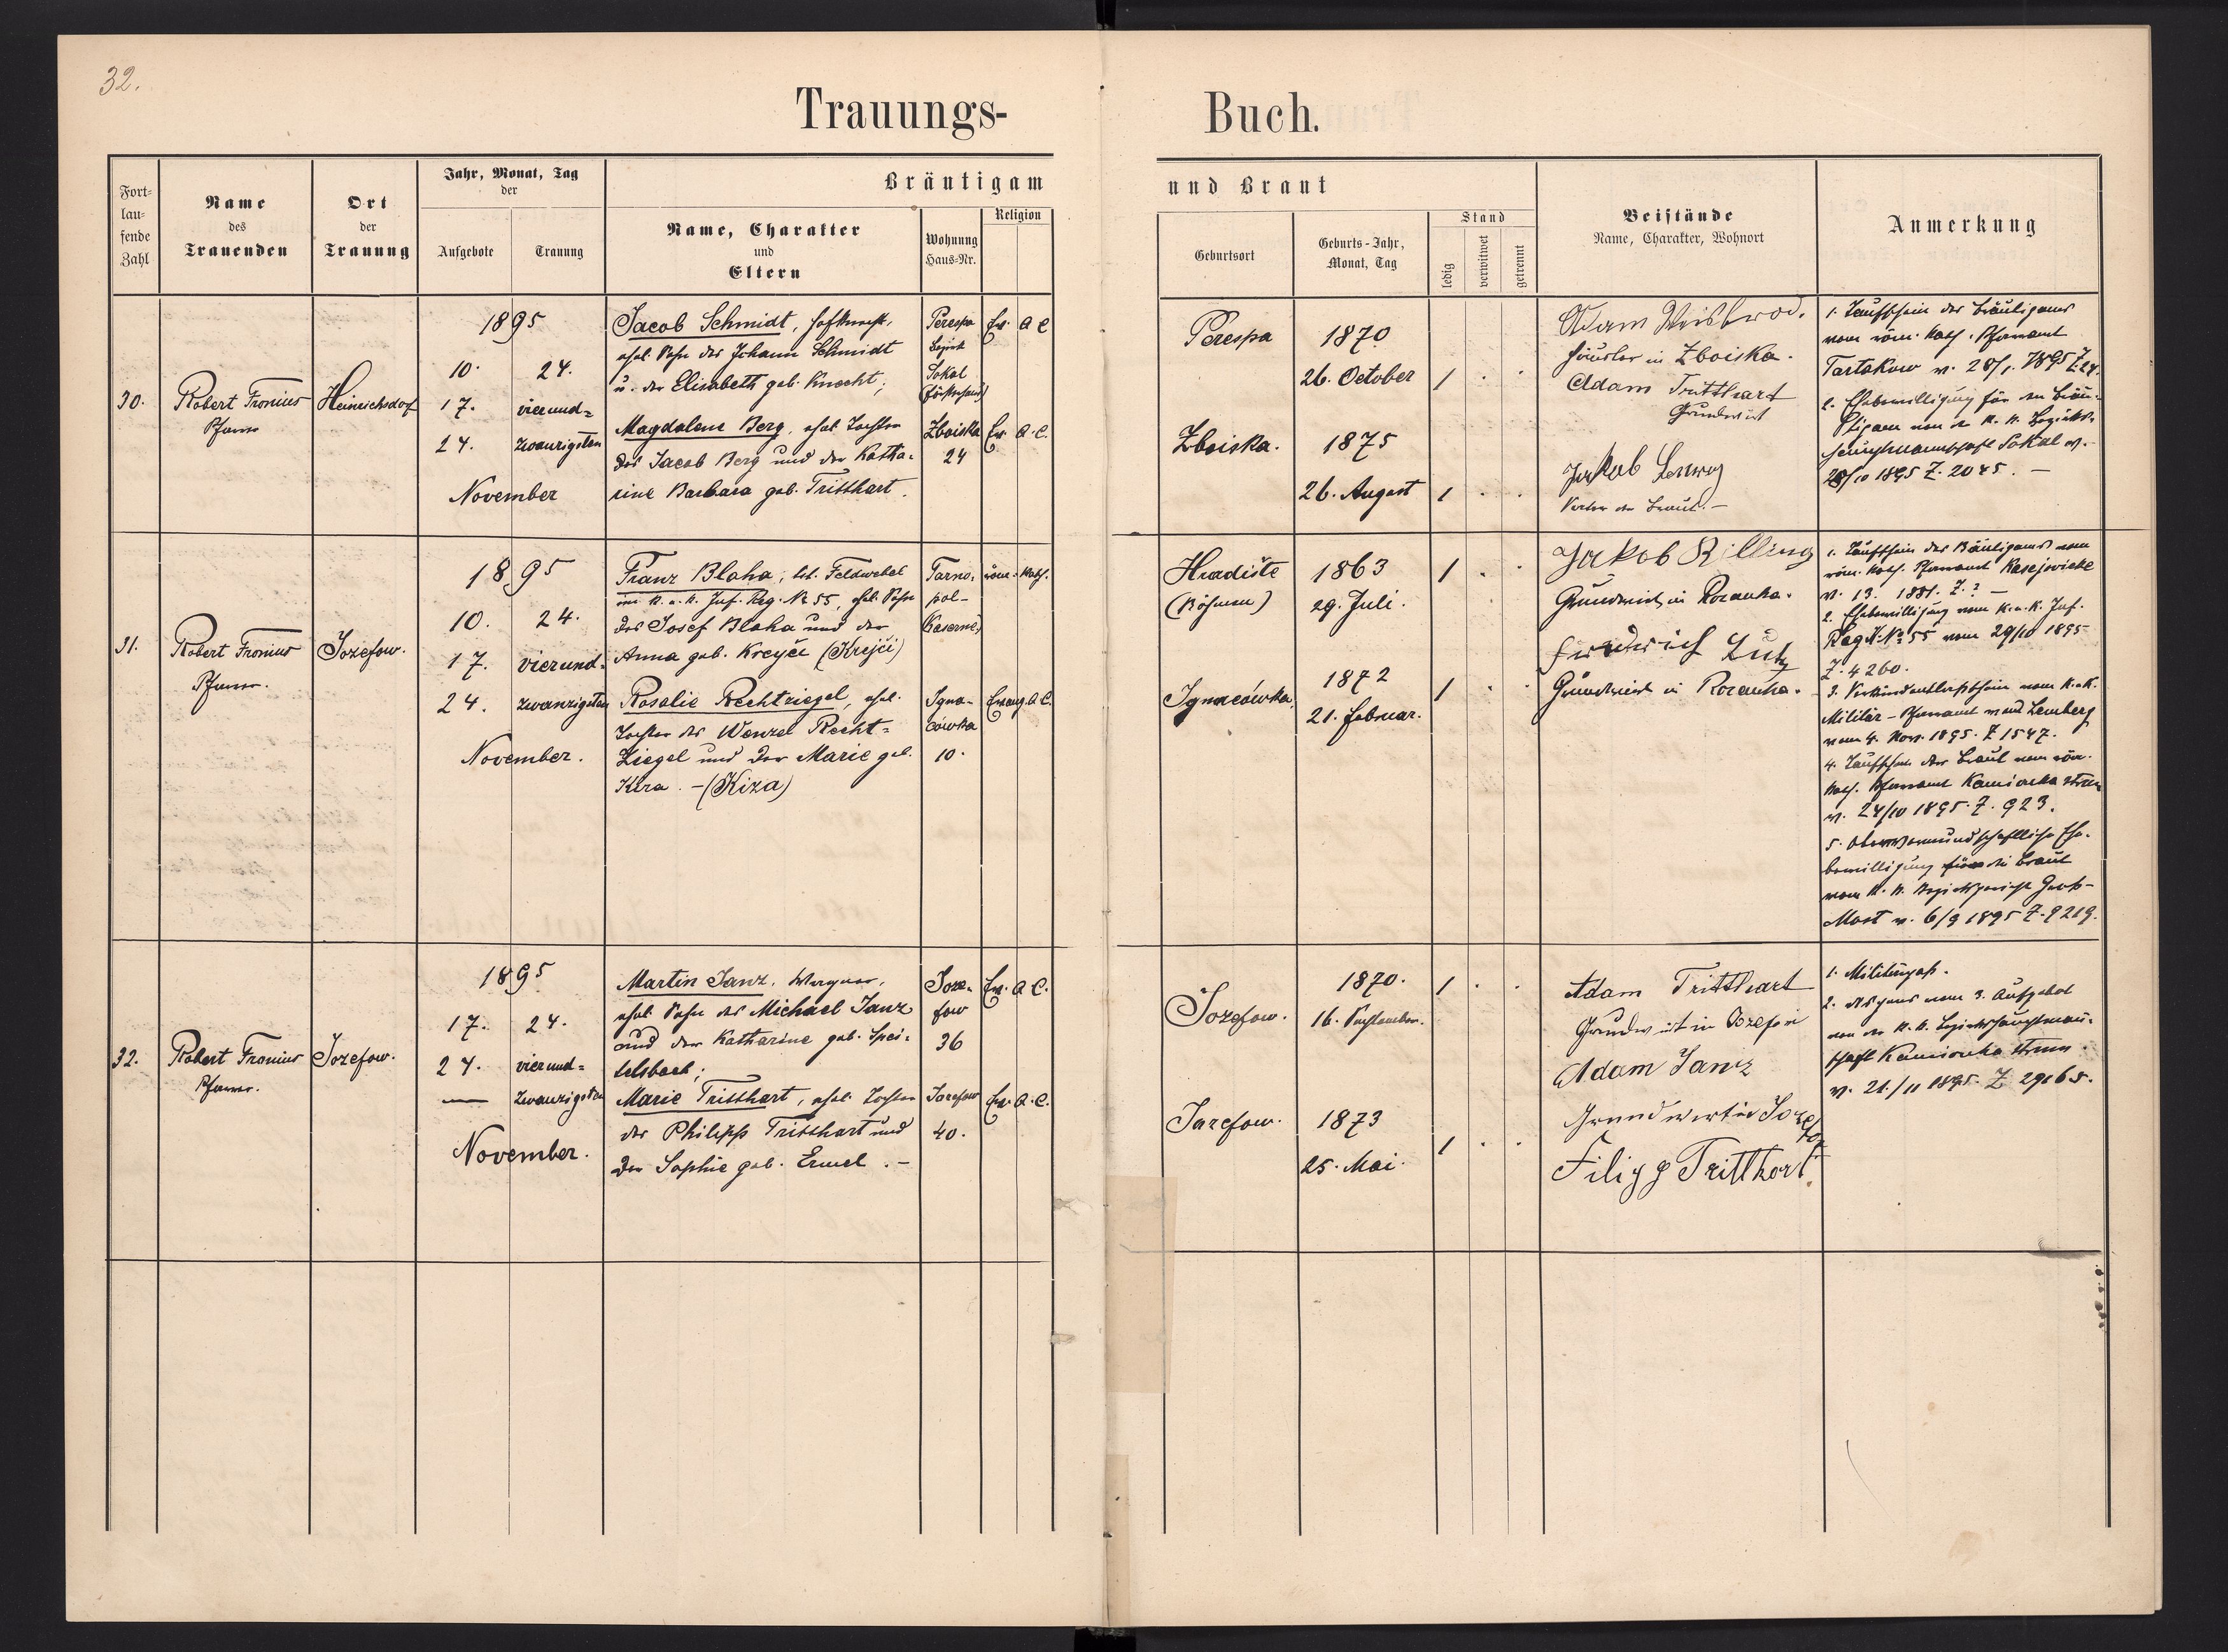 32.
Trauungs-
Buch.
Fort-
lau-
fende
Zahl
Name
des
Trauenden
Ort
der
Trauung
Jahr, Monat, Tag
der
Aufgebote
Trauung
Bräutigam
Name, Charakter
und
Eltern
Wohnung
Haus-Nr.
Religion
und Braut
Geburtsort
Geburts-Jahr,
Monat, Tag
Stand
ledig
verwitwet
getrennt
Beistände
Name, Charakter, Wohnort
Anmerkung
30.
Robert Fronius
Pfarrer
Heinrichsdorf
1895
10. 24.
17. vierund-
24. zwanzigsten
November
Jacob Schmidt,
ehel. Sohn des Johann Schmidt
u. der Elisabeth geb. Knecht;
Magdalena Berg, ehel. Tochter
des Jacob Berg und der Katha-
rine Barbara geb. Tritthart.
Perespa
Bezirk
Sokal
Ev. A C
Zboiska
24
Ev. A. C.
Perespa
1870
26. October
1
Zboiska.
1875
26. August
1
Adam Weisbrod.
Häusler in Zboiska.
Adam Tritthart
Grundwirt
Jakob
Vater der Braut.-
1. Taufschein des Bräutigams
vom röm. kath. Pfarramt
Tartakow v. 28/1. 1895 Z 24.
2. Ehebewilligung für den Bräu-
tigam von der k. k. Bezirks-
hauptmannschaft Sokal v.
28/10 1895 Z. 2045. -
31.
Robert Fronius
Pfarrer.
Jozefow.
1895
10. 24.
17. vierund-
24. zwanzigsten
November.
Franz Blaha, Feldwebel
im k. u. k. Inf. Reg. № 55, ehel. Sohn
des Josef Blaha und der
Anna geb. Kreyči (Krejčí)
Rosalie Rechtziegel, ehel.
Tochter des Wenzel Recht-
Ziegel und der Marie geb.
- (Kiza)
Tarno-
pol-
(Kaserne)
röm. kath.
Igna-
cówka
10.
Evang. A C.
Hradište
(Böhmen)
1863
29. Juli.
1
Ignacówka
1872
21. Februar.
1
Jakob Rilling
Grundwirt in Rozanka.
Friedrich Lutz
Grundwirt in Rozanka.
1. Taufschein des Bräutigams vom
röm. kath. Pfarramt Kasejovicke
v. 13. 1881. Z. ? -
2. Ehebewilligung vom k. u. k. Inf.
Reg. № 55 vom 29/10 1895
Z. 4260.
3. Verkündentlassschein vom k. u. k.
Militär-Pfarramt Lemberg
vom 4. Nov. 1895. Z 1547.
4. Taufschein der Braut vom röm.
kath. Pfarramt Kamionka strum
v. 24/10 1895. Z. 923.
5. Obervormundschaftliche Ehe-
bewilligung für die Braut
vom k. k. Bezirksgericht Gross-
Most v. 6/9 1895 Z. 9219.
32.
Robert Fronius
Pfarrer.
Jozefow.
1895
17. 24.
24. vierund-
— zwanzigsten
November.
Martin Janz, Wagner,
ehel. Sohn des Michael Janz
und der Katharine geb. Spei-
telsbach;
Marie Tritthart, ehel. Tochter
des Philipp Tritthart und
der Sophie geb. Ermel. -
Joze-
fow
36
Ev. A C.
Jozefow
40.
Ev. A. C.
Jozefow.
1870.
16. September.
1
Jozefow.
1873
25. Mai.
1
Adam Tritthart
Grundwirt in Jozefow
Adam Janz
Grundwirt in Jozefow
Filipp Tritthart
1. Militärpass.
2. Dispens vom 3. Aufgebot
von der k. k. Bezirkshauptmann-
schaft Kamionka strum.
v. 21./11 1895. Z 29165.